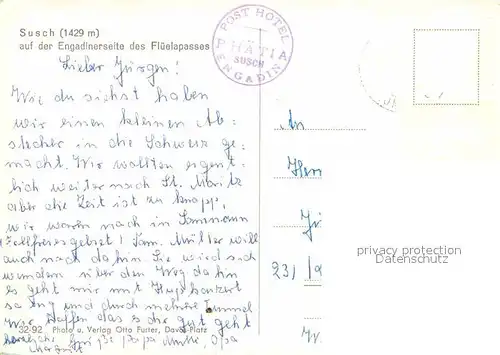 Susch (1429 m)
auf der Engadinerseite des Flüelapasses
POST HOTEL
PHÄTIA
SUSCH
ENGADIN
Lieber Jürgen!
Wie du siehst haben
wir einen kleinen Ab-
stecher in die Schweiz ge-
macht. Wir wollten eigent-
lich weiter nach St. Moritz
aber die Zeit ist zu knapp,
wir waren noch in Samnaun
Müller will
auch noch dahin. Sie wird sich
wundern über den Weg dahin
es geht mir mit
so eng und durch mehrere Tunnel
Wir hoffen das es dir gut geht
herzliche Opa
An
privacy protection
Datenschutz
32-92 Photo u. Verlag Otto Furter, Davos-Platz